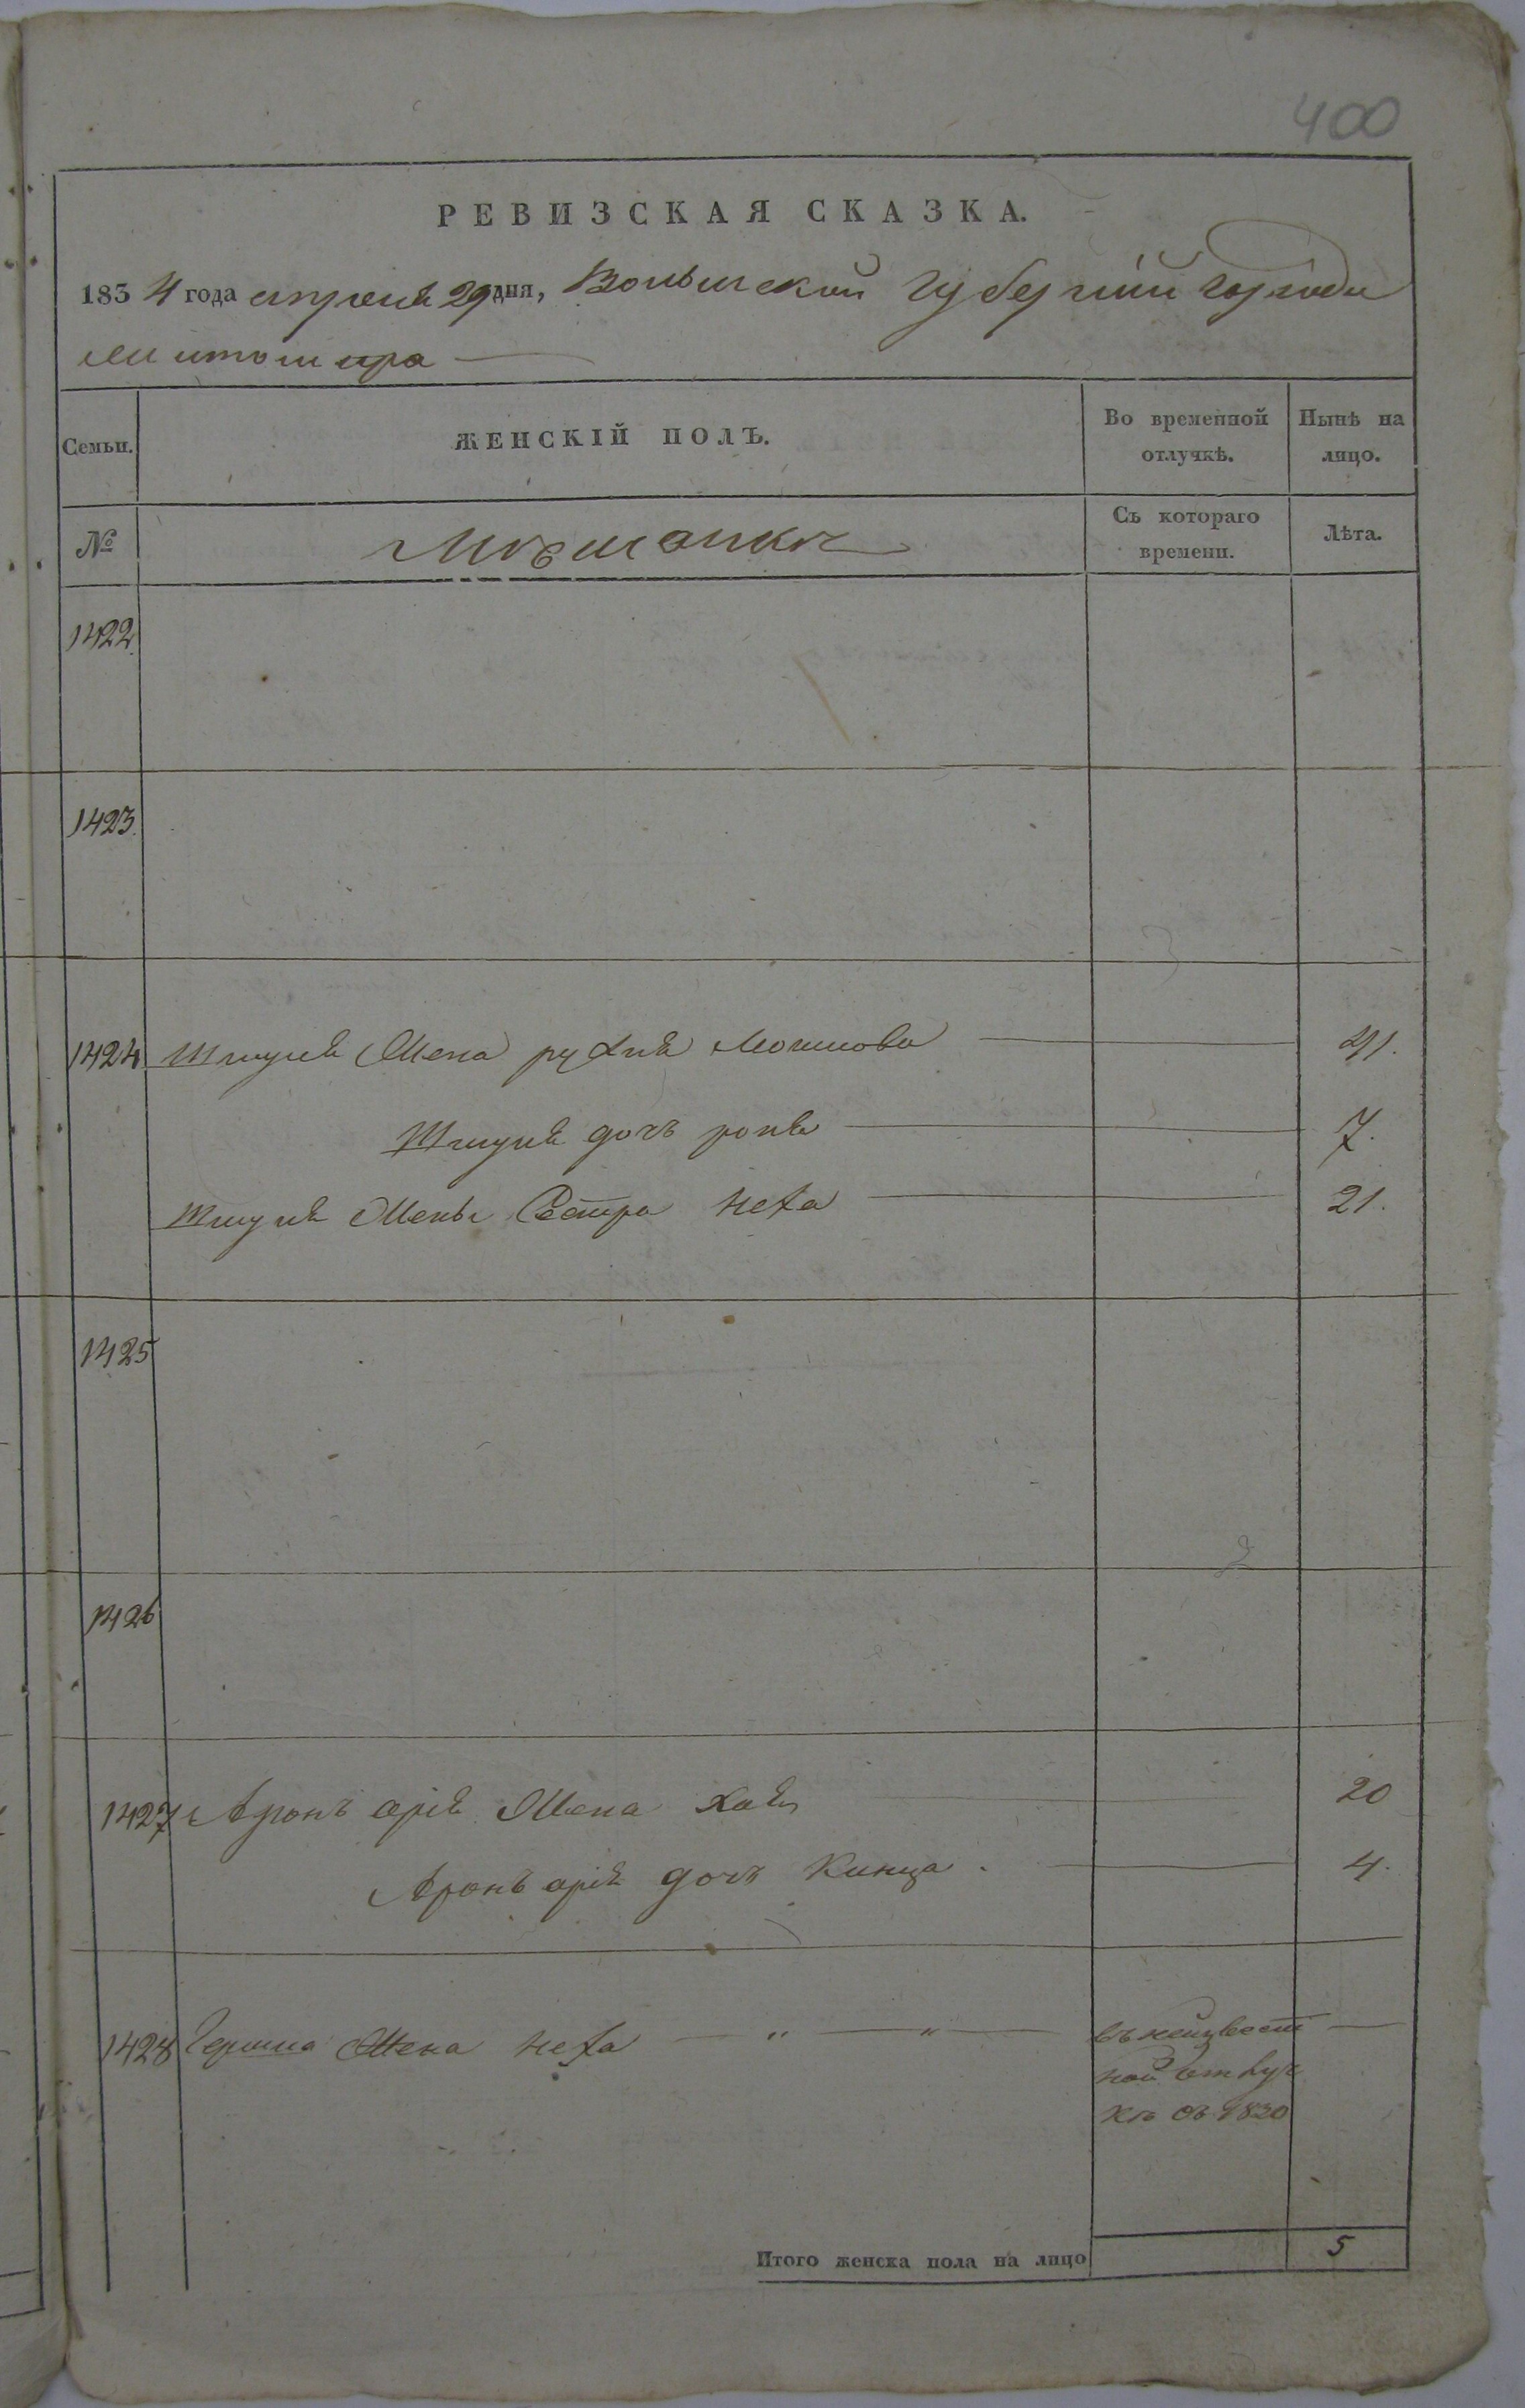 400
РЕВИЗСКАЯ СКАЗКА.
1834 года апреля 29 дня, Волынской губернии города
Житомира
Семьи. ЖЕНСКІЙ ПОЛЪ. Во временной отлучкѣ. Нынѣ на лицо.
№ Мѣщанки Съ котораго времени. Лѣта.
1422
1423.
1424 жена рухля Мошкова 41.
дочь 7.
жены Сестра Неха 21.
1425
1426
1427 Аронъ жена Хая 20
Аронъ дочь Кинца 4.
1428 Гершка жена Неха въ неизвест
ной отлуч
кѣ съ 1830
Итого женска пола на лицо 5